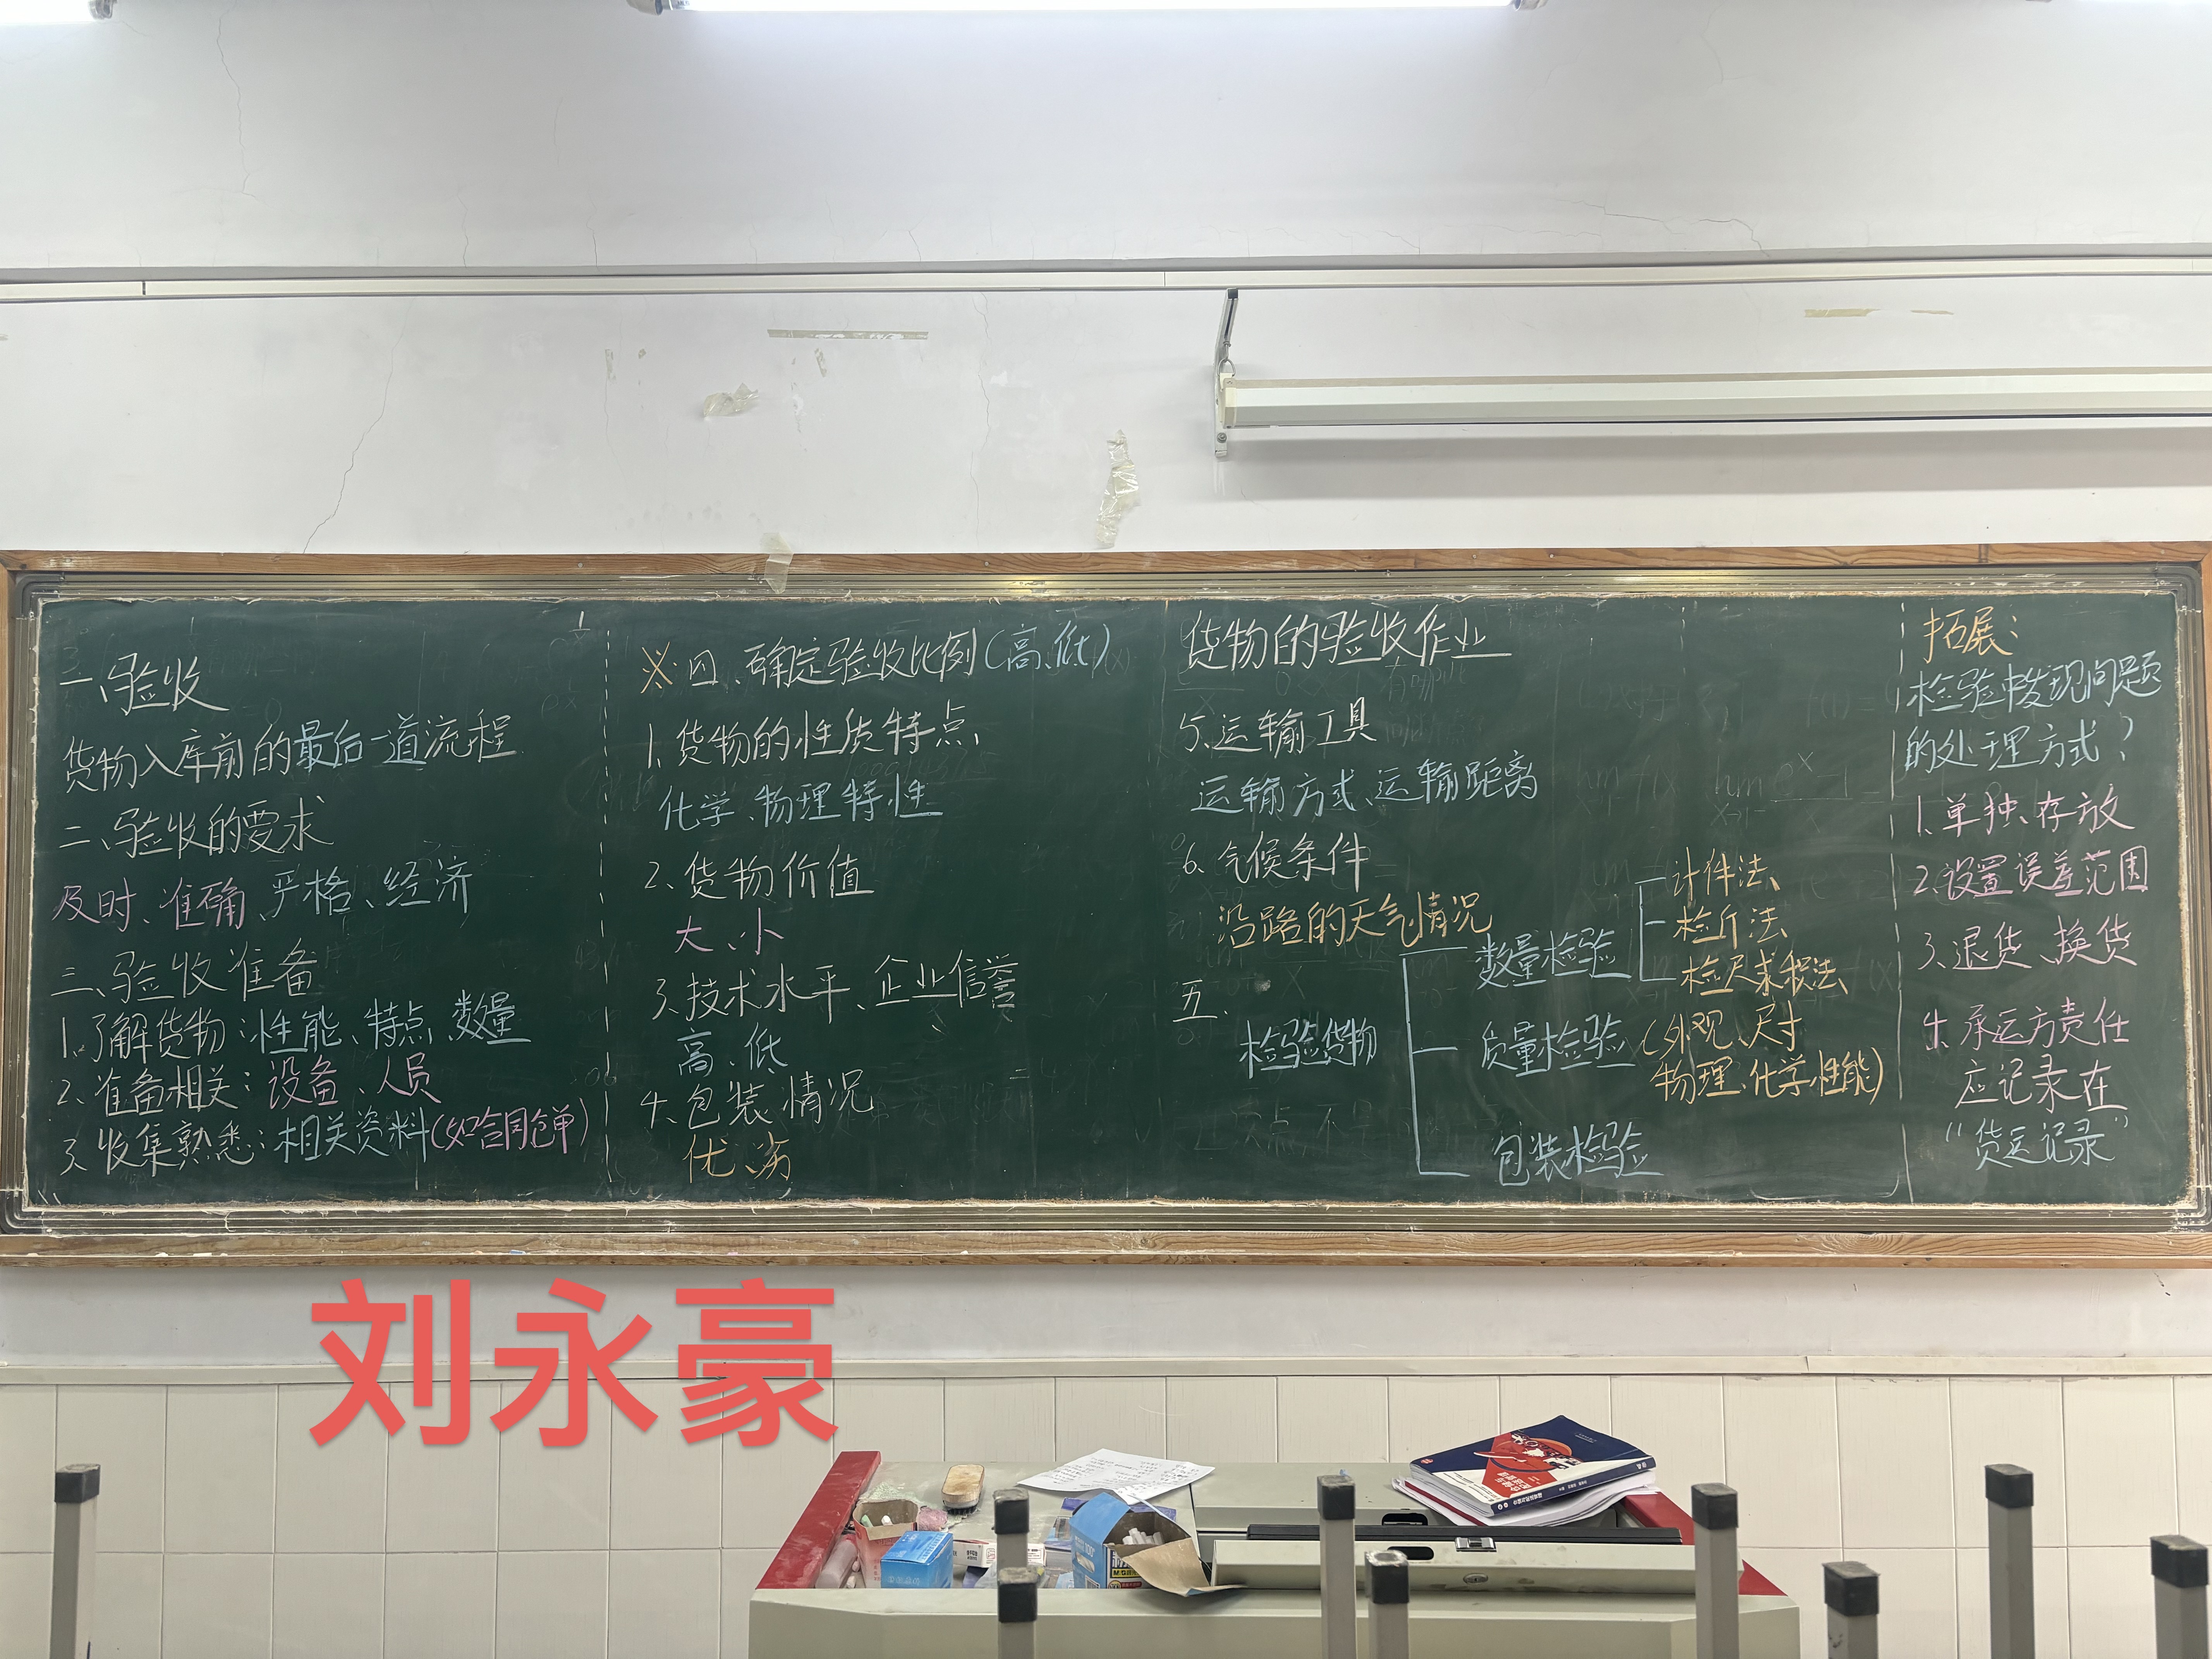 货物的验收作业
一、验收
货物入库前的最后一道流程
二、验收的要求
及时、准确、严格、经济
三、验收准备
1.了解货物:性能、特点、数量
2、准备相关:设备、人员
3、收集熟悉:相关资料(如合同仓单)
※四、确定验收比例(高、低)
1、货物的性质特点
化学、物理特性
2、货物价值
大、小
3、技术水平、企业信誉
高、低
4、包装情况
优、劣
5、运输工具
运输方式、运输距离
6、气候条件
沿路的天气情况
五、
检验货物
数量检验
计件法、
检斤法、
检尺求积法、
质量检验
(外观、尺寸
物理、化学性能)
包装检验
拓展:
检验中发现问题
的处理方式?
1、单独存放
2、设置误差范围
3、退货、换货
4、承运方责任
应记录在
“货运记录”
刘永豪